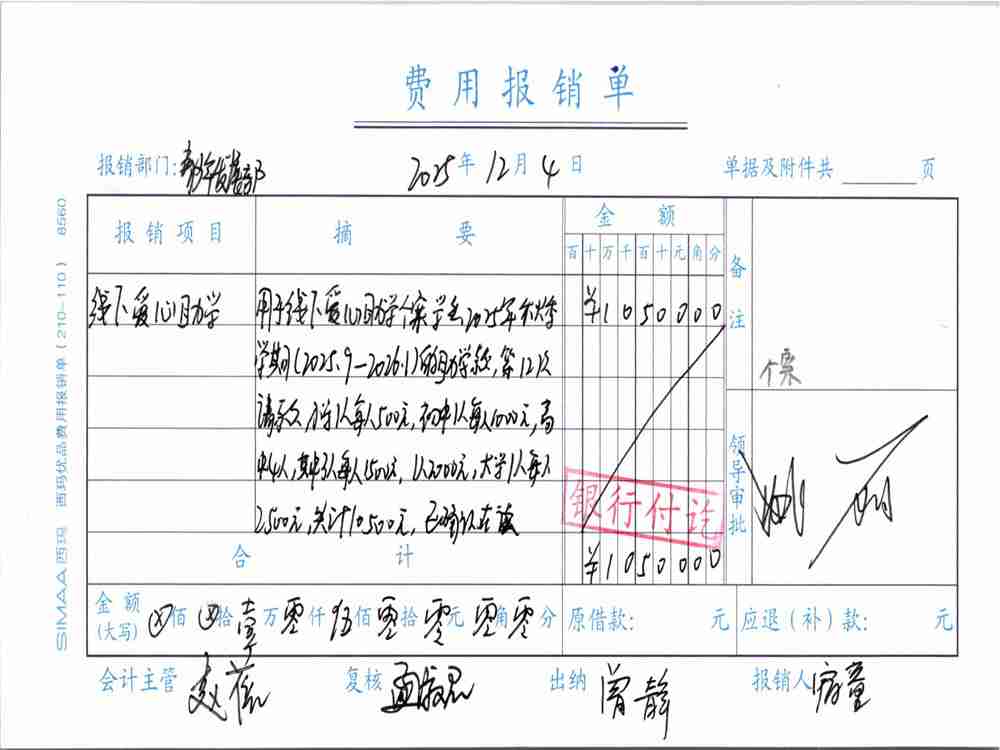 费用报销单
报销部门: 2025年12月4日 单据及附件共 页
报销项目 摘要 金额 备注
百十万千百十元角分
线下爱心助学 用于线下爱心助学个案学生2025年秋季 ¥1050000
学期(2025.9-2026.1)的助学款,第12次
请款,小学1人每人500元,初中1人每人1000元,高
中4人,其中3人每人1500元,1人2000元,大学1人每人
2500元,共计10500元,已确认在读
个案
领导审批
银行付讫
合计 ¥1050000
金额(大写) 佰 拾壹万零仟伍佰零拾零元零角零分 原借款: 元 应退(补)款: 元
会计主管 复核 出纳 曾静 报销人
SIMAA西玛 西玛优品费用报销单(210-110) 8560